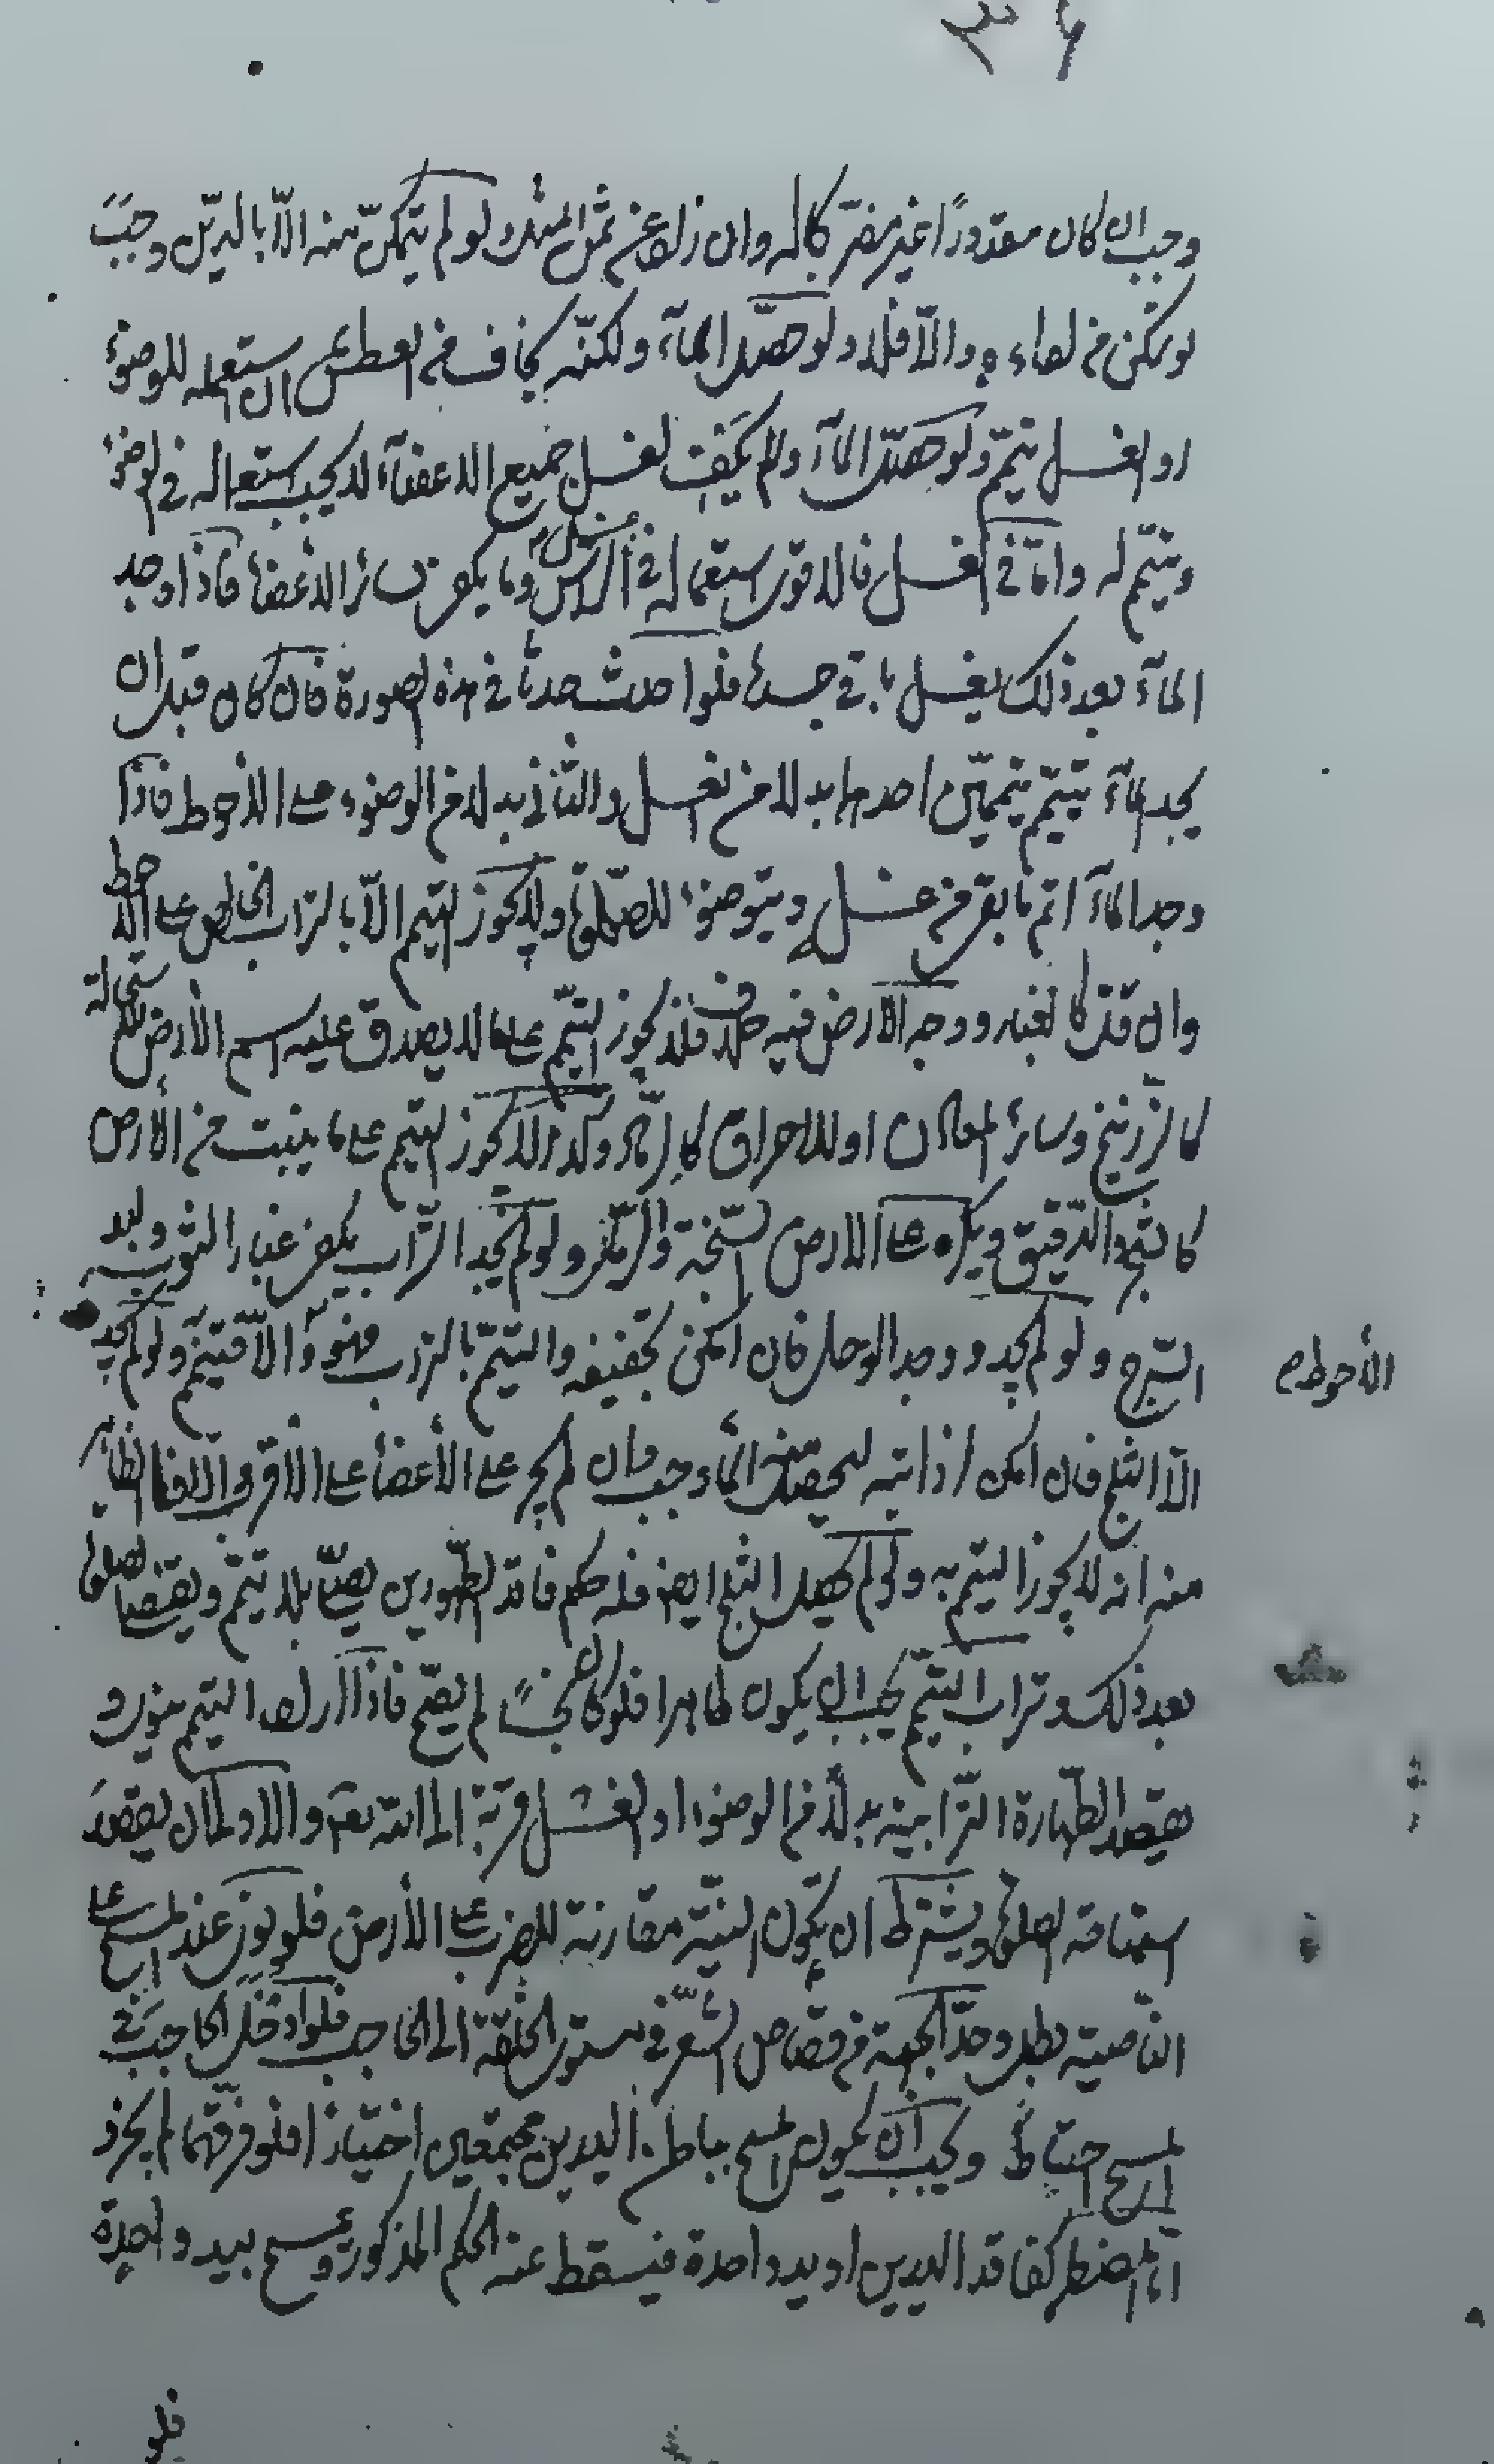 وجب ان كان مقدورًا غير مضر بحاله وان زاد عن ثمن المثل ولو لم يتمكّن منه الّا بالدّين وجبَ
لو تمكن من اداءه والّا فلا ولو حصّل المآء ولكنّه يخاف من العطش ان استعمله للوضوء
او الغسل تيمّم ولو حصّل المآء ولم يكفِ لغسل جميع الاعضآء لا يجب استعماله في الوضوء
ويتيمّم له وامّا في الغسل فالاقوى استعماله في غسل الرأس وما يكفى سائر الاعضاء فاذا وجد
المآء بعد ذلك يغسل باقي جسده فلو احدث حدثا في هذه الصورة فان كان قبل ان
يجد المآء تيمّم تيمّمين احدهما بدلا من الغسل والثاني بدلا من الوضوء على الأحوط فاذا
وجد المآء اتم ما بقى من غسله ويتوضوء للصّلوة ولا يجوز التيمم الّا بالتراب الخالص على الاحوط
وان قلّ كالغبار ووجه الأرض فيه خلاف فلا يجوز التيمّم على ما لا يصدق عليه اسم الأرض للاستحالة
كالزّرنيخ وسائر المعادن او للاحراق كالرّماد وكذا لا يجوز التيمم على ما ينبت من الأرض
كالشجر والدّقيق ويكره على الارض السّبخة والرّمل ولو لم يجد التّراب يكفى غبار الثّوب ولبد
السّرج ولو لم يجد ووجد الوحل فان امكن تجفيفه والتيمّم بالتراب فهو والّا فتيمّم ولو لم يجد
الأحوط م
الّا الثلج فان امكن اذابته ليحصل منه المآء وجب وان لم يجر على الأعضاء على الأقرب والّا فالظاهر
منه انه لا يجوز التيمم به ولو لم يحصل الثلج ايضا فله حكم فاقد الطّهورين يصلّي بلا تيمّم ويقضى الصلوة
بعد ذلك وتراب التيمّم يجب ان يكون طاهرا فلو كان نجسًا لم يصحّ فاذا اراد التيمم ينوى و
يقصد الطّهارة التّرابية بدلًا من الوضوء او الغسل قربة الى الله تعالى والاولى ان يقصدَ
استباحة الصلوة ويشترط ان يكون النيّة مقارنة للضرب على الأرض فلو نوى عند المسح على
النّاصية بطل وحدّ الجبهة من قصاص الشّعر في مستوى الخلقة الى الحاجب فلو ادخل الحاجبَ في
المسح احتياطًا ويجب أن يكون المسح بباطن اليدين مجتمعين اختيارًا فلو فرّقهما لم يجز و
امّا المضطر كفاقد اليدين او يد واحدة فيسقط عنه الحكم المذكور ويمسح بيد واحدة
فلو